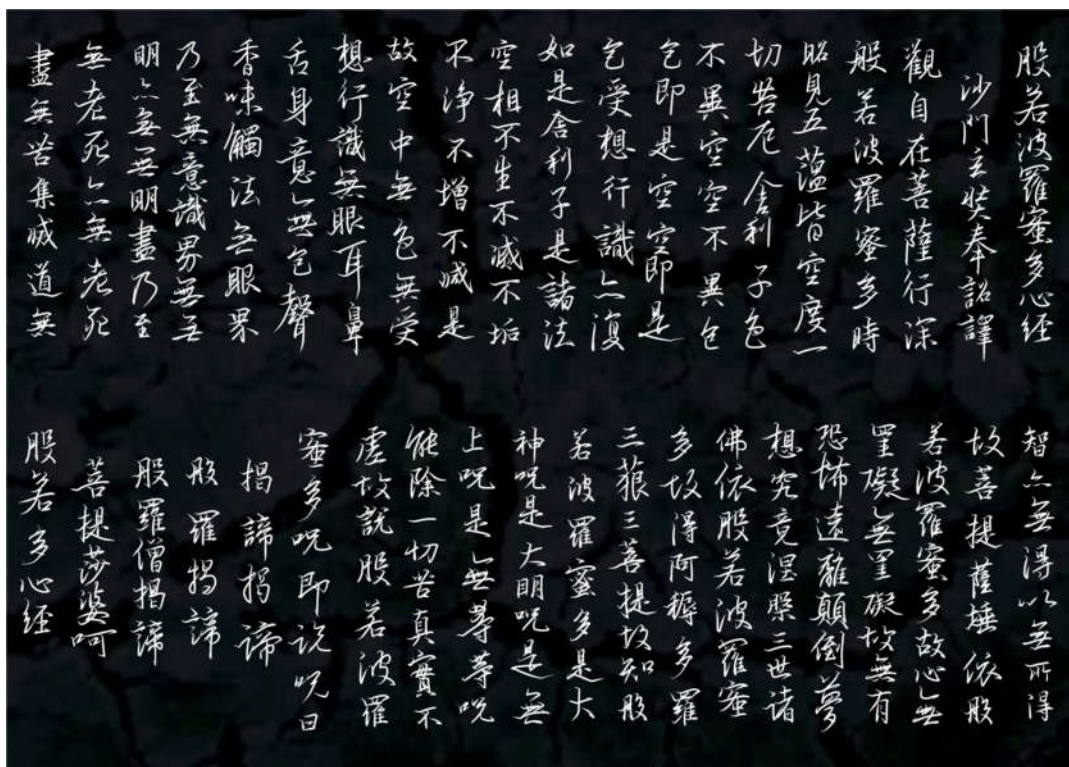 般若波羅蜜多心経
沙門玄奘奉詔譯
觀自在菩薩行深
般若波羅蜜多時
照見五蘊皆空度一
切苦厄舍利子色
不異空空不異色
色即是空空即是
色受想行識亦復
如是舍利子是諸法
空相不生不滅不垢
不淨不增不減是
故空中無色無受
想行識無眼耳鼻
舌身意無色聲
香味觸法無眼界
乃至無意識界無無
明亦無無明盡乃至
無老死亦無老死
盡無苦集滅道無
智亦無得以無所得
故菩提薩埵依般
若波羅蜜多故心無
罣礙無罣礙故無有
恐怖遠離顛倒夢
想究竟涅槃三世諸
佛依般若波羅蜜
多故得阿耨多羅
三藐三菩提故知般
若波羅蜜多是大
神咒是大明咒是無
上咒是無等等咒
能除一切苦真實不
虛故說般若波羅
蜜多咒即說咒曰
揭諦揭諦
般羅揭諦
般羅僧揭諦
菩提莎婆呵
般若多心経